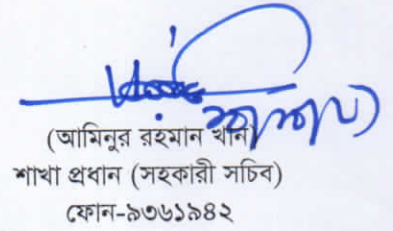 (আমিনুর রহমান খান)
শাখা প্রধান (সহকারী সচিব)
ফোন-৯৩৬১৯৪২